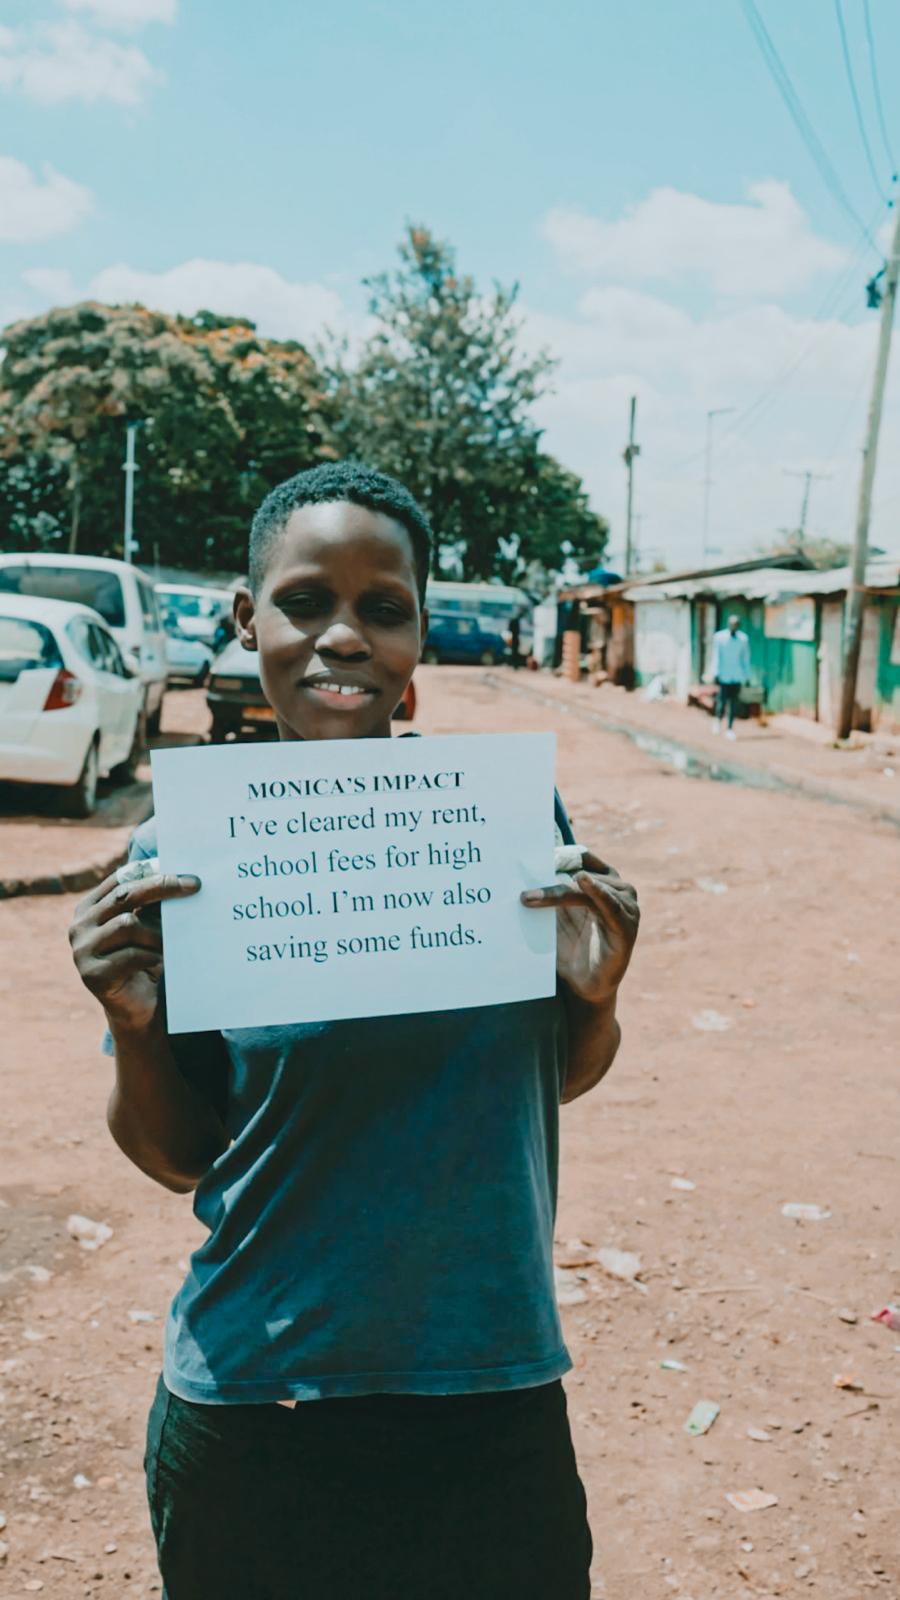 MONICA'S IMPACT
I've cleared my rent,
school fees for high
school. I'm now also
saving some funds.